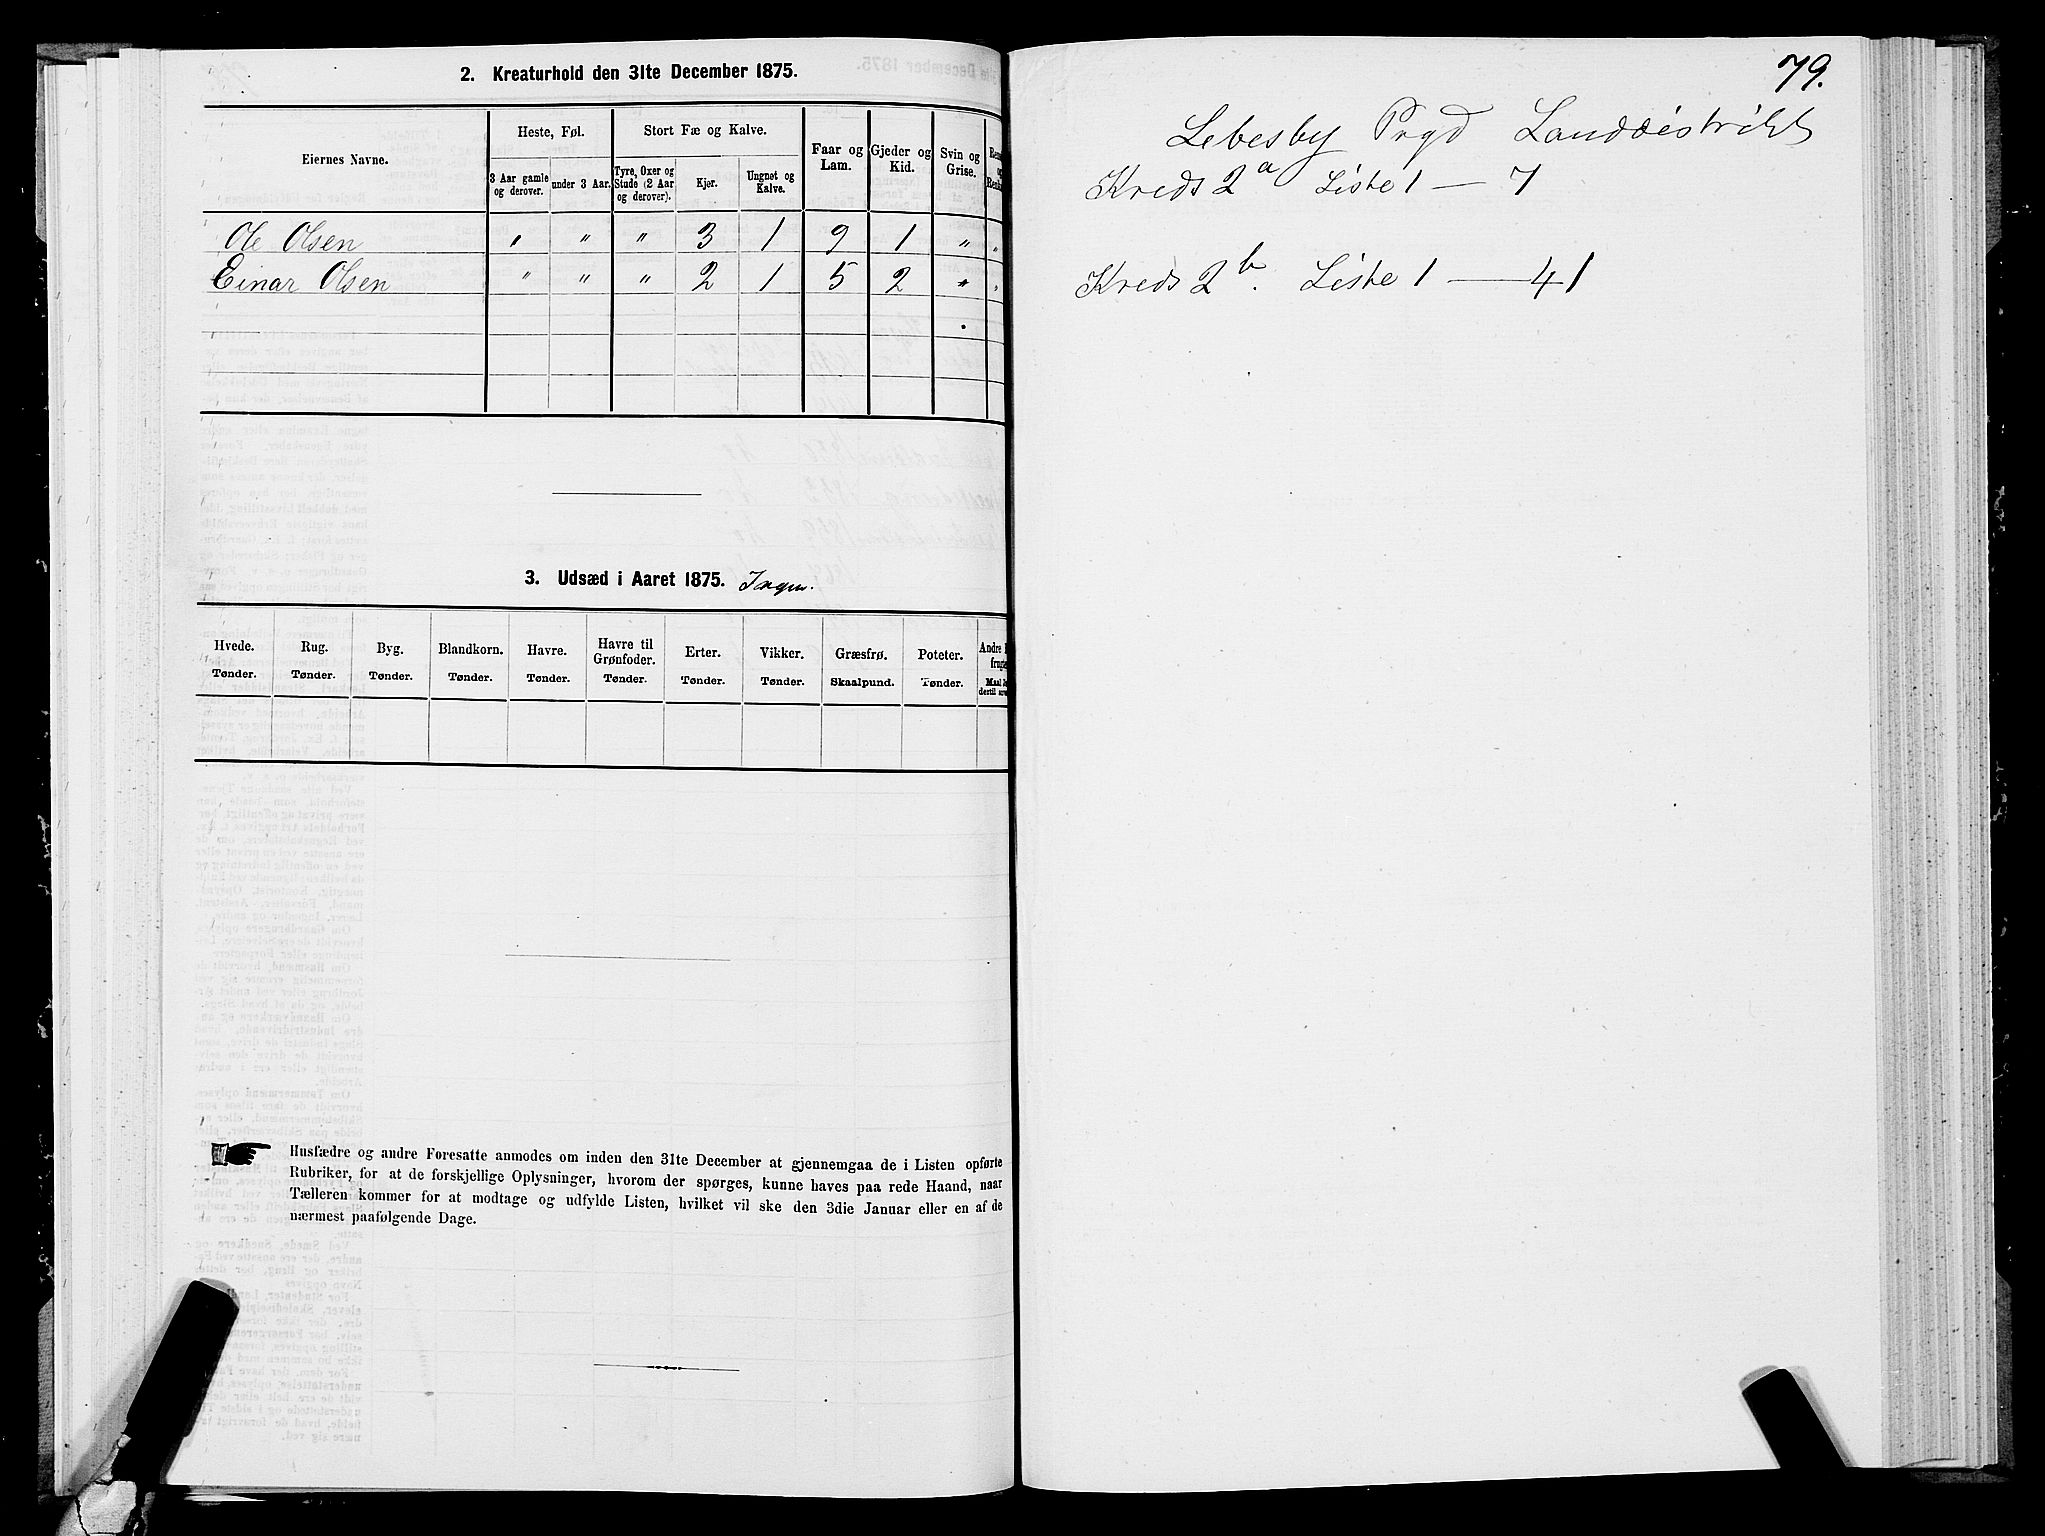 2. Kreaturhold den 31te December 1875.
Eiernes Navne.
Heste, Føl.
Stort Fæ og Kalve.
Faar og Lam.
Gjeder og Kid.
Svin og Grise.
3 Aar gamle og derover.
under 3 Aar.
Tyre, Oxer og Stude (2 Aar og derover).
Kjør.
Ungnøt og Kalve.
Ole Olsen " " " 3 1 9 1 " "
Einar Olsen " " " 2 1 5 2 " "
3. Udsæd i Aaret 1875. Ingen.
Hvede. Rug. Byg. Blandkorn. Havre. Havre til Grønfoder. Erter. Vikker. Græsfrø. Poteter.
Tønder. Tønder. Tønder. Tønder. Tønder. Tønder. Tønder. Tønder. Skaalpund. Tønder.
Husfædre og andre Foresatte anmodes om inden den 31te December at gjennemgaa de i Listen opførte
Rubriker, for at de forskjellige Oplysninger, hvorom der spørges, kunne haves paa rede Haand, naar
Tælleren kommer for at modtage og udfylde Listen, hvilket vil ske den 3die Januar eller en af de
nærmest paafølgende Dage.
79.
Lebesby Prgd Landdistrikt
Kreds 2a Liste 1 — 7
Kreds 2b. Liste 1 — 41